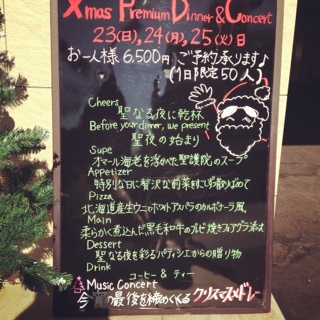 Xmas Premium Dinner & Concert
23(日),24(月),25(火)日
お一人様 6,500円 ご予約承ります♪
(1日限定50人)
Cheers
聖なる夜に乾杯
Before your dinner, we present
聖夜の始まり
Supe
オマール海老を浮かべた聖護院のスープ
Appetizer
特別な日に贅沢な前菜をにぎ散りばめて
Pizza
北海道産生ウニとホワイトアスパラのカルボナーラ風
Main
柔らかく煮込んだ黒毛和牛のルビー焼きフォアグラ添え
Dessert
聖なる夜を彩るパティシエからの贈り物
Drink
コーヒー & ティー
Music Concert
今宵の最後を締めくくるクリスマスメドレー